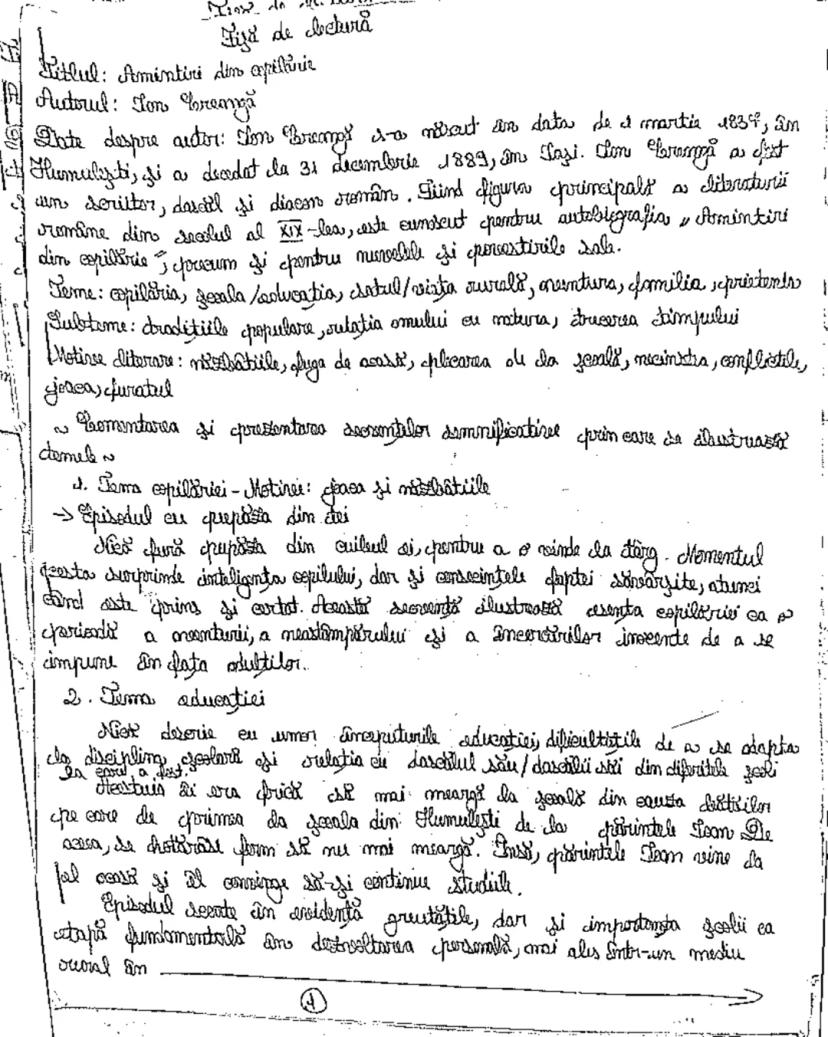 Fișă de lectură
Titlul: Amintiri din copilărie
Autorul: Ion Creangă
Date despre autor: Ion Creangă s-a născut în data de 1 martie 1837, în
Humulești, și a decedat la 31 decembrie 1889, în Iași. Ion Creangă a fost
un scriitor, dascăl și diacon român. Fiind figura principală a literaturii
române din secolul al XIX-lea, este cunoscut pentru autobiografia „Amintiri
din copilărie”, precum și pentru nuvelele și povestirile sale.
Teme: copilăria, școala/educația, satul/viața rurală, aventura, familia, prietenia
Subteme: tradițiile populare, relația omului cu natura, trecerea timpului
Motive literare: năzbâtiile, fuga de acasă, plicarea de la școală, necinstea, conflictele,
joaca, furatul
~ Comentarea și prezentarea secvențelor semnificative prin care se ilustrează
temele ~
1. Tema copilăriei - Motivei: joaca și năzbâtiile
→ Episodul cu pupăza din tei
Nică fură pupăza din cuibul ei, pentru a o vinde la târg. Momentul
acesta surprinde inteligența copilului, dar și consecințele faptei săvârșite, atunci
când este prins și certat. Această secvență ilustrează esența copilăriei ca o
perioadă a aventurii, a neastâmpărului și a încercărilor inocente de a se
impune în fața adulților.
2. Tema educației
Nică descrie cu umor începuturile educației, dificultățile de a se adapta
la disciplina școlară și relația cu dascălul său/dascălii săi din diferitele școli
la care a fost.
Acestuia îi era frică să mai meargă la școală din cauza bătăilor
pe care le primea la școala din Humulești de la părintele Ioan. De
aceea, se hotărăse ferm să nu mai meargă. Însă, părintele Ioan vine la
el acasă și îl convinge să-și continue studiile.
Episodul scoate în evidență greutățile, dar și importanța școlii ca
etapă fundamentală în dezvoltarea personală, mai ales într-un mediu
rural în
1